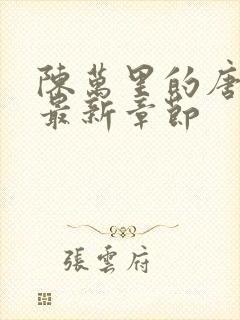 陳萬里的唐
最新章節
張雲府